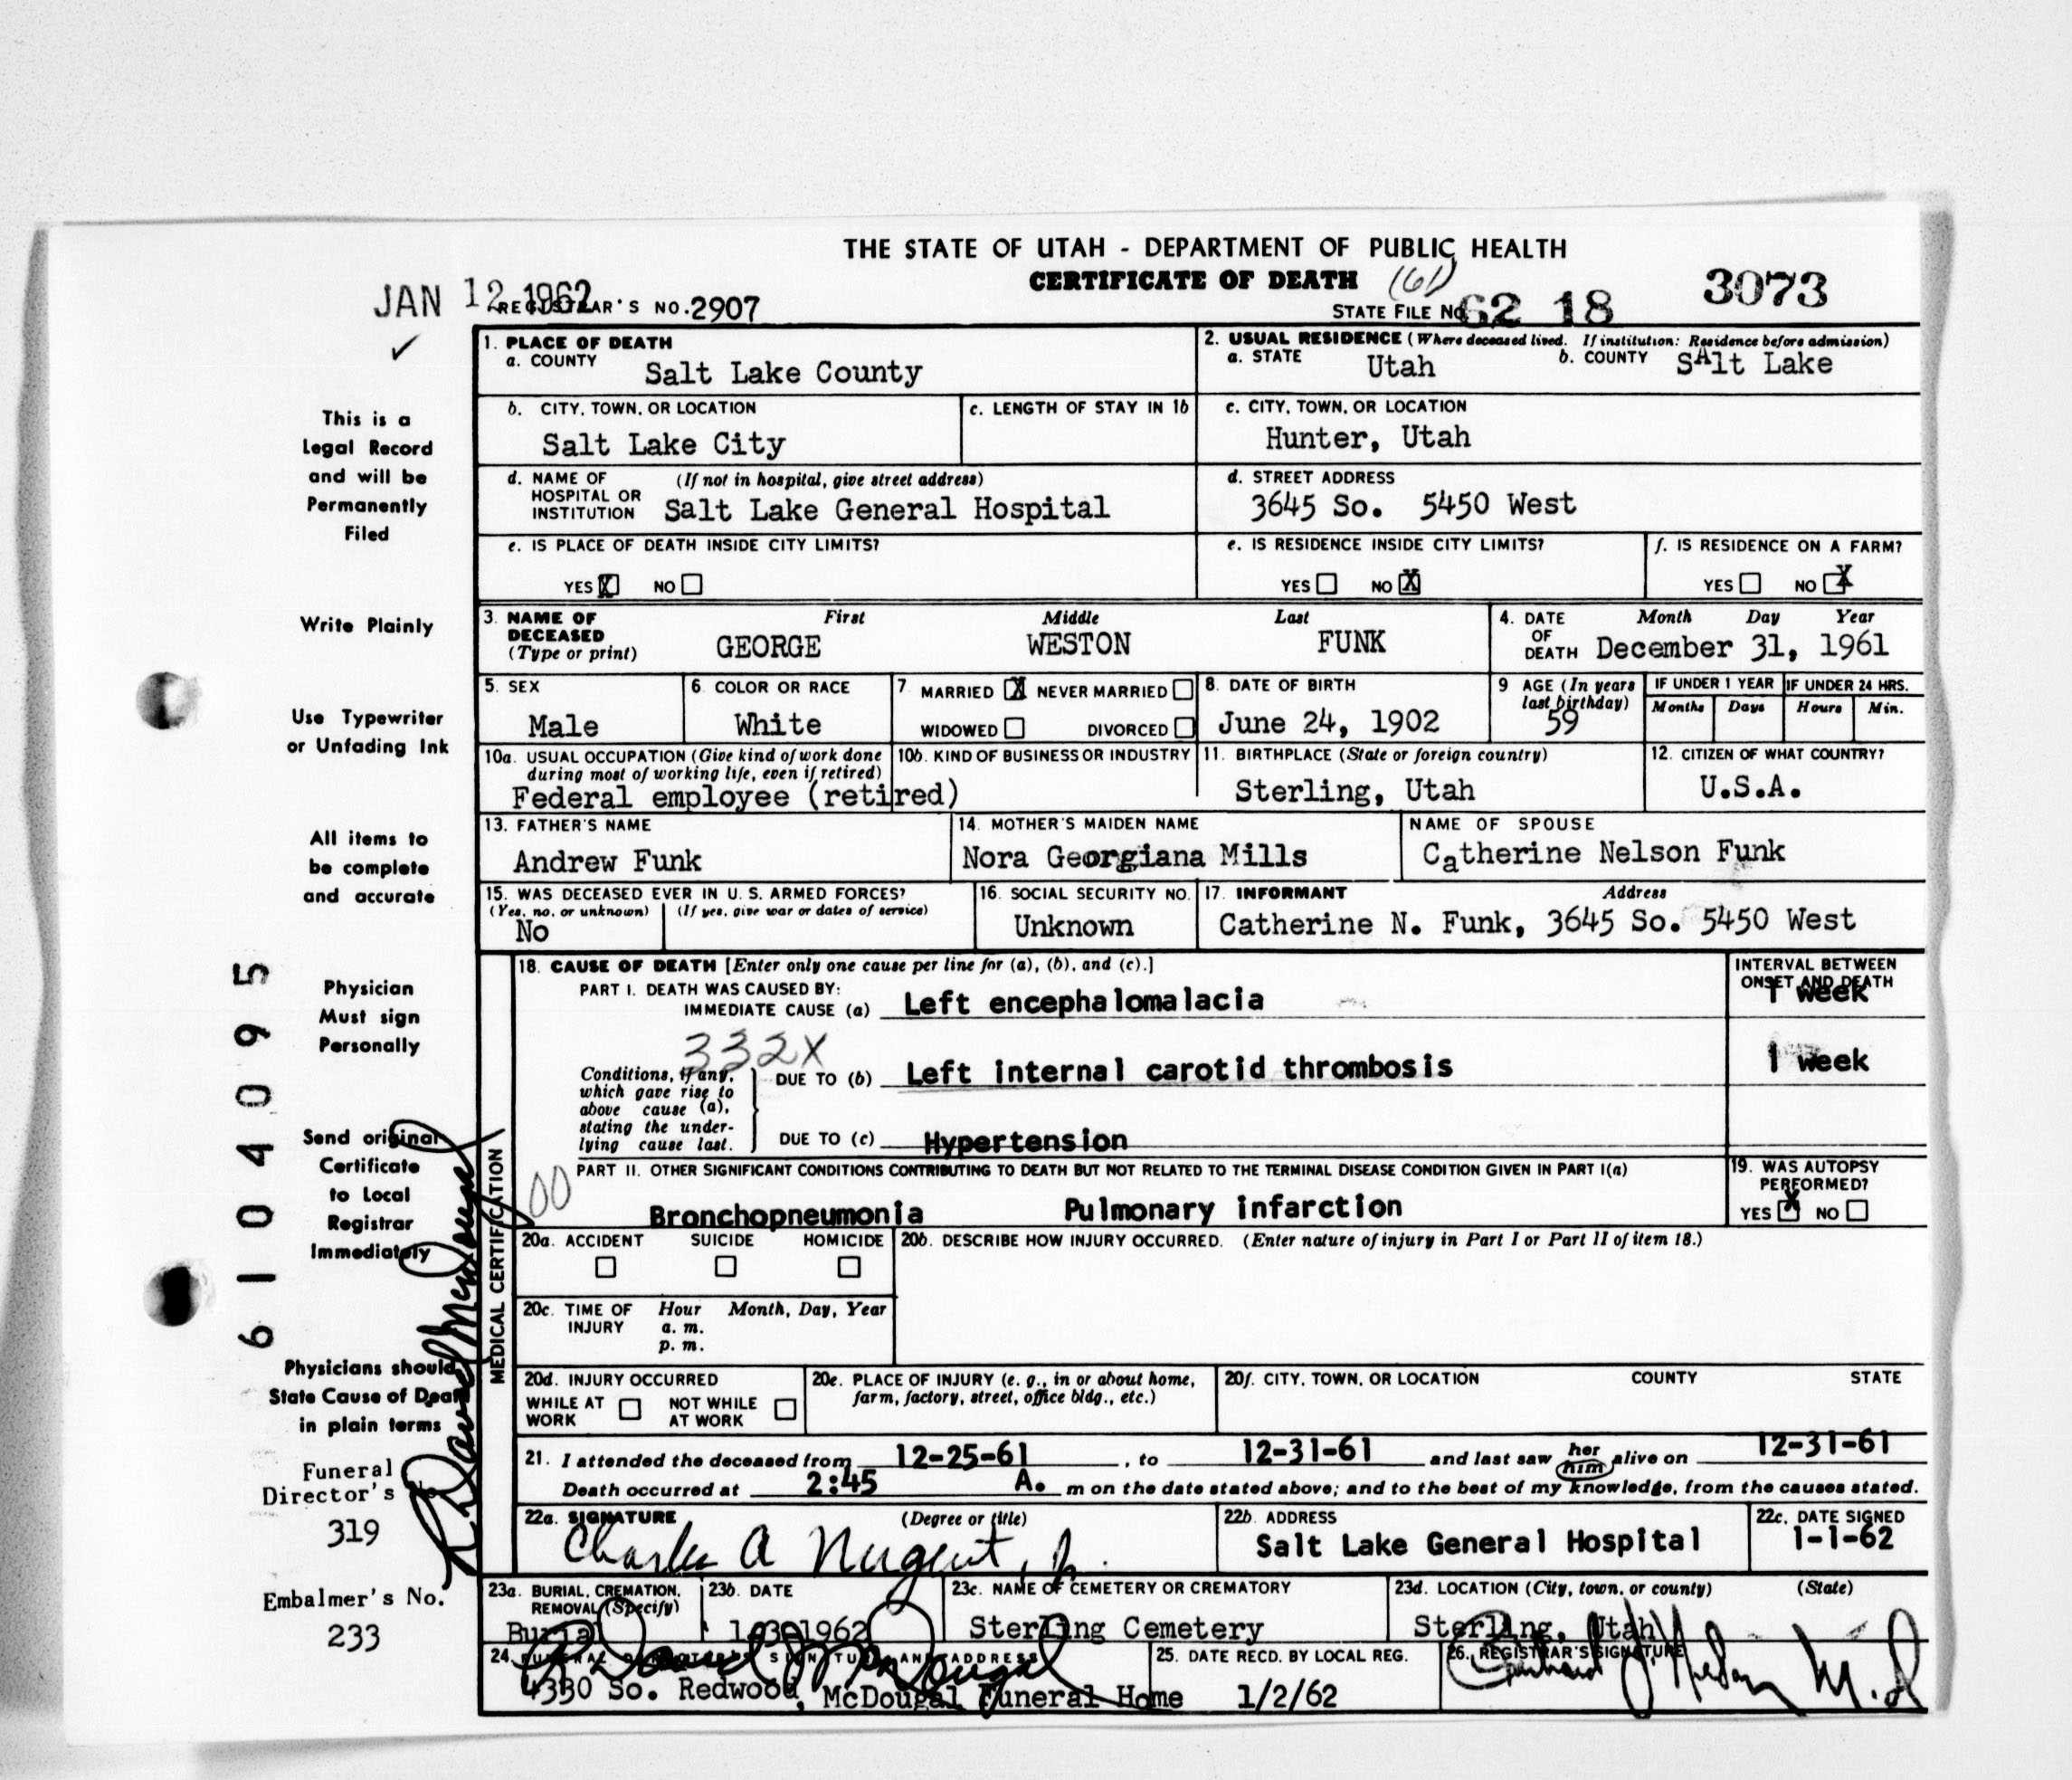 THE STATE OF UTAH - DEPARTMENT OF PUBLIC HEALTH
CERTIFICATE OF DEATH (61)
JAN 12 1962 REGISTRAR'S NO. 2907 STATE FILE NO. 62 18 3073
1. PLACE OF DEATH
a. COUNTY Salt Lake County
2. USUAL RESIDENCE (Where deceased lived. If institution: Residence before admission)
a. STATE Utah b. COUNTY SAlt Lake
b. CITY, TOWN, OR LOCATION Salt Lake City
c. LENGTH OF STAY IN 1b
c. CITY, TOWN, OR LOCATION Hunter, Utah
d. NAME OF HOSPITAL OR INSTITUTION (If not in hospital, give street address) Salt Lake General Hospital
d. STREET ADDRESS 3645 So. 5450 West
e. IS PLACE OF DEATH INSIDE CITY LIMITS?
YES X NO
e. IS RESIDENCE INSIDE CITY LIMITS?
YES NO X
f. IS RESIDENCE ON A FARM?
YES NO X
3. NAME OF DECEASED (Type or print) First Middle Last
GEORGE WESTON FUNK
4. DATE OF DEATH Month Day Year
December 31, 1961
5. SEX Male
6. COLOR OR RACE White
7 MARRIED X NEVER MARRIED
WIDOWED DIVORCED
8. DATE OF BIRTH June 24, 1902
9 AGE (In years last birthday) 59
IF UNDER 1 YEAR Months Days
IF UNDER 24 HRS. Hours Min.
10a. USUAL OCCUPATION (Give kind of work done during most of working life, even if retired)
Federal employee (retired)
10b. KIND OF BUSINESS OR INDUSTRY
11. BIRTHPLACE (State or foreign country) Sterling, Utah
12. CITIZEN OF WHAT COUNTRY? U.S.A.
13. FATHER'S NAME Andrew Funk
14. MOTHER'S MAIDEN NAME Nora Georgiana Mills
NAME OF SPOUSE Catherine Nelson Funk
15. WAS DECEASED EVER IN U. S. ARMED FORCES?
(Yes, no, or unknown) (If yes, give war or dates of service)
No
16. SOCIAL SECURITY NO. Unknown
17. INFORMANT Address
Catherine N. Funk, 3645 So. 5450 West
MEDICAL CERTIFICATION
18. CAUSE OF DEATH [Enter only one cause per line for (a), (b), and (c).]
INTERVAL BETWEEN ONSET AND DEATH
PART I. DEATH WAS CAUSED BY:
IMMEDIATE CAUSE (a) Left encephalomalacia 1 week
332X
Conditions, if any, which gave rise to above cause (a), stating the underlying cause last.
DUE TO (b) Left internal carotid thrombosis 1 week
DUE TO (c) Hypertension
00
PART II. OTHER SIGNIFICANT CONDITIONS CONTRIBUTING TO DEATH BUT NOT RELATED TO THE TERMINAL DISEASE CONDITION GIVEN IN PART I(a)
Bronchopneumonia Pulmonary infarction
19. WAS AUTOPSY PERFORMED?
YES X NO
20a. ACCIDENT SUICIDE HOMICIDE
20b. DESCRIBE HOW INJURY OCCURRED. (Enter nature of injury in Part I or Part II of item 18.)
20c. TIME OF INJURY Hour Month, Day, Year
a. m.
p. m.
20d. INJURY OCCURRED
WHILE AT WORK NOT WHILE AT WORK
20e. PLACE OF INJURY (e. g., in or about home, farm, factory, street, office bldg., etc.)
20f. CITY, TOWN, OR LOCATION COUNTY STATE
21. I attended the deceased from 12-25-61, to 12-31-61 and last saw her him alive on 12-31-61
Death occurred at 2:45 A. m on the date stated above; and to the best of my knowledge, from the causes stated.
22a. SIGNATURE (Degree or title)
Charles A Nugent, Jr.
22b. ADDRESS Salt Lake General Hospital
22c. DATE SIGNED 1-1-62
23a. BURIAL, CREMATION, REMOVAL (Specify) Burial
23b. DATE 1-3-1962
23c. NAME OF CEMETERY OR CREMATORY Sterling Cemetery
23d. LOCATION (City, town, or county) (State)
Sterling, Utah
24. FUNERAL DIRECTOR'S SIGNATURE AND ADDRESS
R David McDougal
4330 So. Redwood, McDougal Funeral Home
25. DATE RECD. BY LOCAL REG. 1/2/62
26. REGISTRAR'S SIGNATURE
M.D
This is a
Legal Record
and will be
Permanently
Filed
Write Plainly
Use Typewriter
or Unfading Ink
All items to
be complete
and accurate
Physician
Must sign
Personally
Send original
Certificate
to Local
Registrar
Immediately
Physicians should
State Cause of Death
in plain terms
Funeral
Director's No.
319
Embalmer's No.
233
6104095
R David McDougal